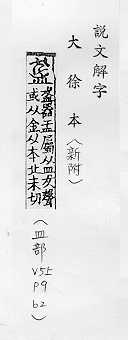 說文解字
大徐本
(新附)
盋器盂屬从皿犮聲
或从金从本北末切
(皿部
V5上
P9
b2)